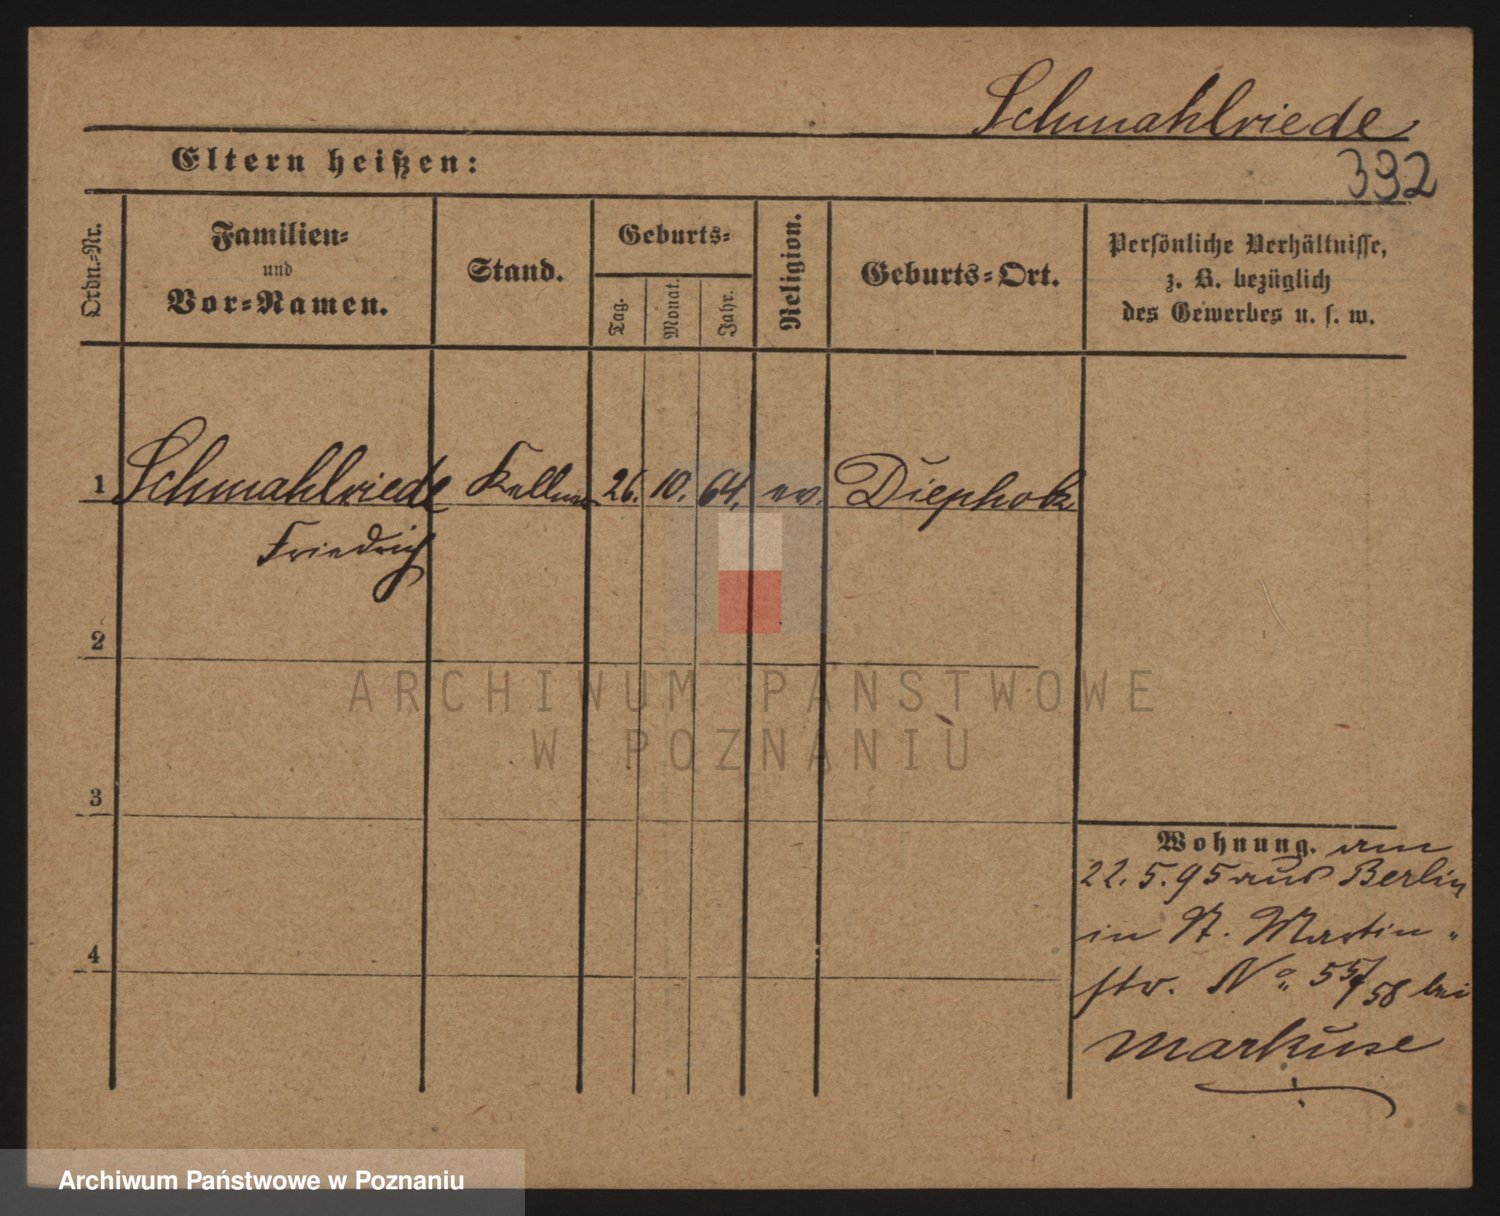 Schmahlriede
Eltern heißen:
392
Ordn.-Nr.
Familien-
und
Vor-Namen.
Stand.
Geburts-
Tag.
Monat.
Jahr.
Religion.
Geburts-Ort.
Persönliche Verhältnisse,
z. B. bezüglich
des Gewerbes u. s. w.
1 Schmahlriede Kellner 26. 10. 64. ev. Diepholz
Friedrich
2
ARCHIWUM PAŃSTWOWE
W POZNANIU
3
4
Wohnung. am
22. 5. 95 aus Berlin
in St. Martin-
str. No 57/58 bei
Markuse
Archiwum Państwowe w Poznaniu